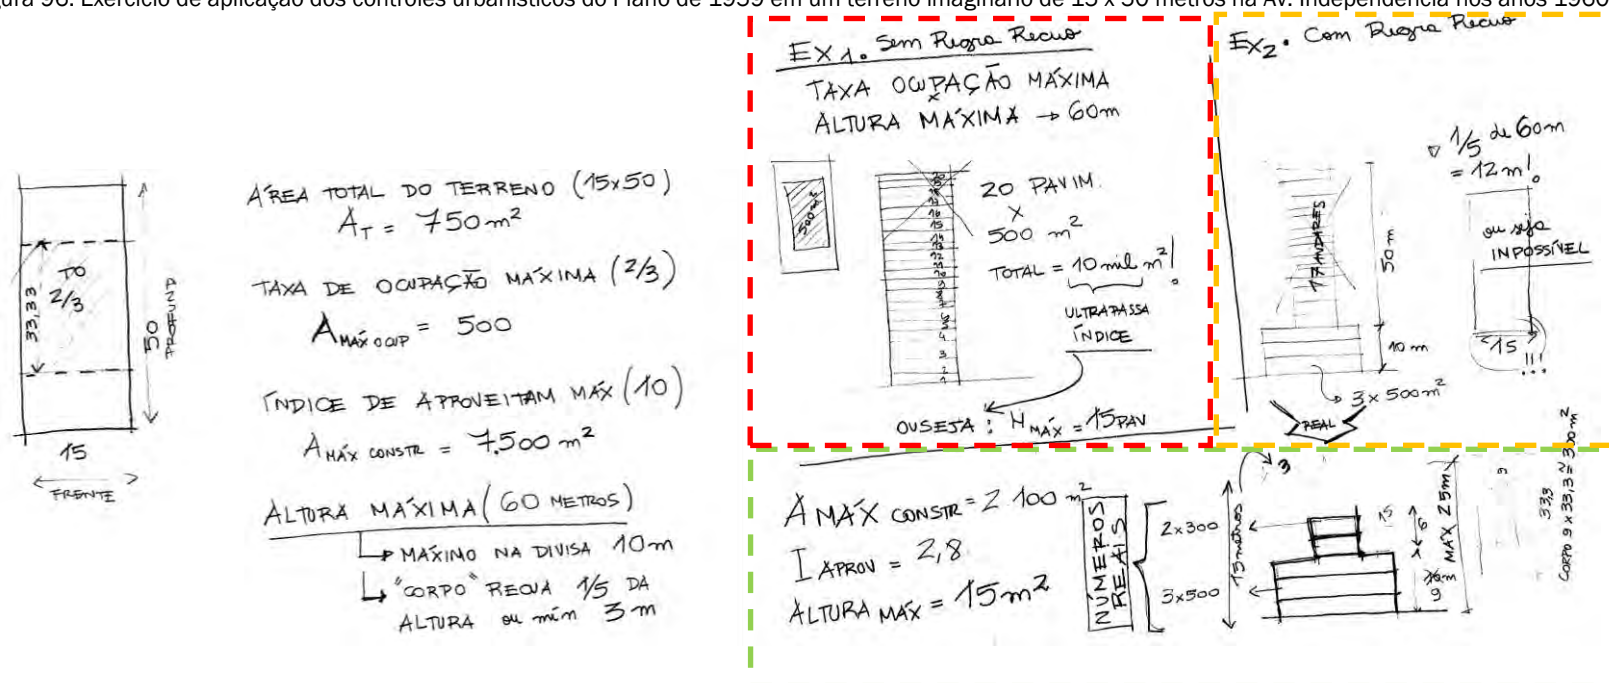 Figura 96. Exercício de aplicação dos controles urbanísticos do Plano de 1959 em um terreno imaginário de 15 x 50 metros na Av. Independência nos anos 1960
TO
2/3
33,33
50
PROFUND
15
FRENTE
ÁREA TOTAL DO TERRENO (15x50)
AT = 750 m²
TAXA DE OCUPAÇÃO MÁXIMA (2/3)
AMÁX OCUP = 500
ÍNDICE DE APROVEITAM MÁX (10)
AMÁX CONSTR = 7.500 m²
ALTURA MÁXIMA (60 METROS)
MÁXIMO NA DIVISA 10m
"CORPO" RECUA 1/5 DA
ALTURA ou mín 3m
EX1. Sem Regra Recuo
TAXA OCUPAÇÃO MÁXIMA
x
ALTURA MÁXIMA → 60m
500 m²
20 PAVIM.
x
500 m²
TOTAL = 10 mil m²!
ULTRAPASSA
ÍNDICE
OUSEJA: HMÁX = 15 PAV
EX2. Com Regra Recuo
1/5 de 60m
= 12m!
17 ANDARES
50 m
10 m
3 x 500 m²
ou seja
INPOSSÍVEL
15
!!!
REAL
AMÁX CONSTR = 2 100 m²
I APROV = 2,8
ALTURA MÁX = 15 m²
NÚMEROS
REAIS
2x300
3x500
15 metros
3
15
6
10m
9
MÁX 25m
9
33,3
CORPO 9 x 33,3 ≅ 300 m²